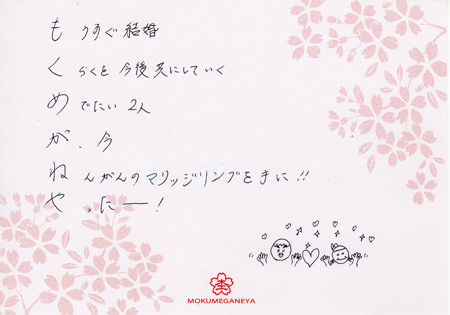 も うすぐ 結婚
く らくを 今後 共にしていく
め でたい 2人
が、今
ね んがんの マリッジリングを手に!!
や ったー!
杢
MOKUMEGANEYA